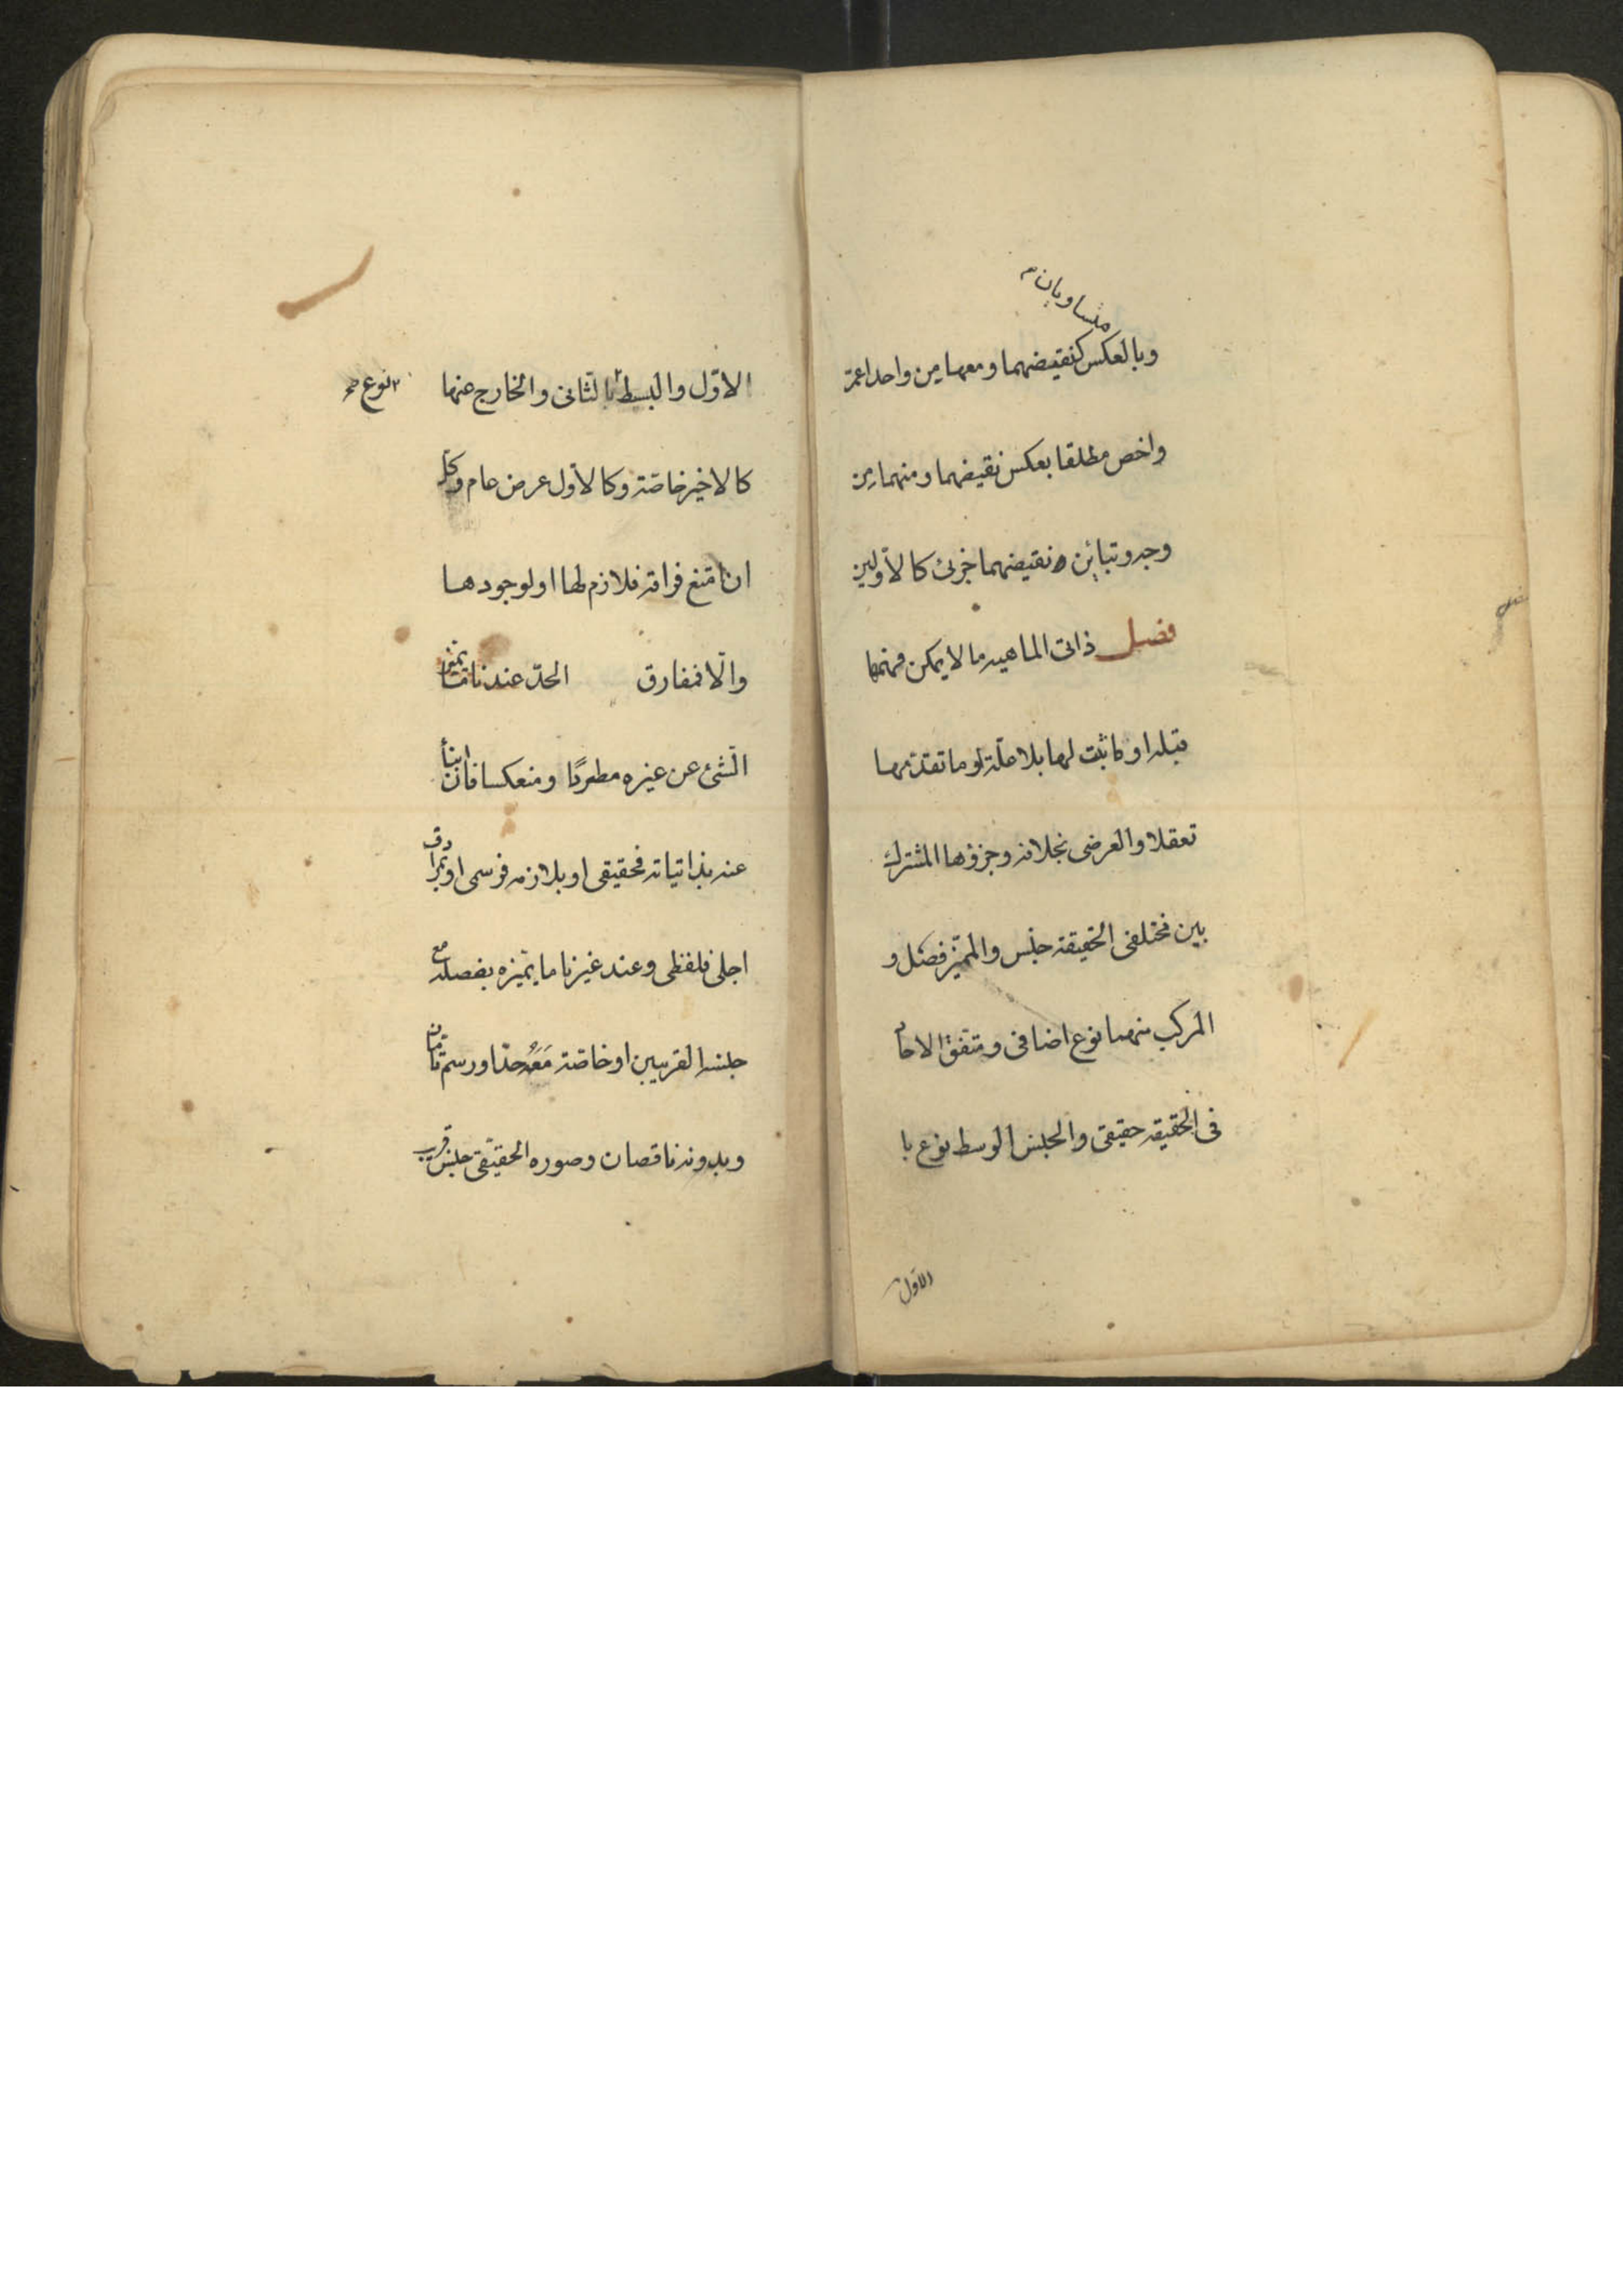 متساويان
وبالعكس كنقيضهما ومعها من واحد اعم
واخص مطلقا بعكس نقيضهما ومنهما من
وجه وتباين نقيضهما جزئى كالأولين
فصل ذاتى الماهيه ما لا يمكن فهمها
قبله او ما ثبت لها بلا علة او ما تقدمها
تعقلا والعرضى بخلافه وجزؤها المشترك
بين مختلفى الحقيقة جنس والمميز فصل و
المركب منهما نوع اضافى ومتفق الاحاد
فى الحقيقه حقيقى والجنس الوسط نوع با
الاول
الاوّل والبسيط بالثانى والخارج عنها نوع
كالاخير خاصة وكالاول عرض عام وكل
ان امتنع فراقه فلازم لها او لوجودها
والّا فمفارق الحدّ عندنا ما يميز
الشئ عن غيره مطردًا ومنعكسا فان انبأ
عنه بذاتياته فحقيقى او بلازمه فرسمى او بمرادف
اجلى فلفظى وعند غيرنا ما يميزه بفصله مع
جنسه القريبين او خاصة مَعَهُ حدّا ورسم تامّان
وبدونه ناقصان وصوره الحقيقى جنس قريب